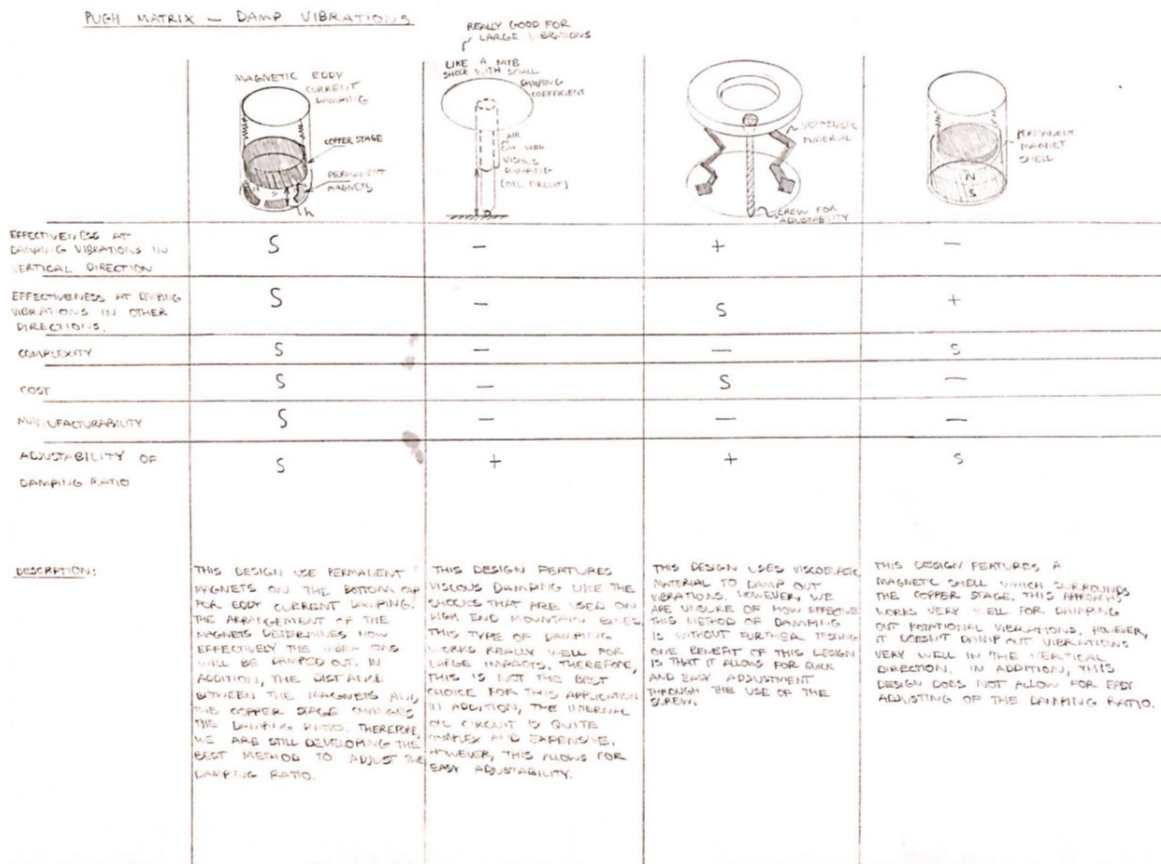 PUGH MATRIX – DAMP VIBRATIONS
REALLY GOOD FOR
LARGE VIBRATIONS
MAGNETIC EDDY
CURRENT
DAMPING
COPPER STAGE
PERMANENT
MAGNETS
N
S
h
LIKE A MTB
SHOCK WITH SMALL
DAMPING
COEFFICIENT
AIR
OIL WITH
VISCOUS
DAMPING
(OIL CIRCUIT)
MATERIAL
SCREW FOR
ADJUSTABILITY
PERMANENT
MAGNET
SHELL
N
S
EFFECTIVENESS AT
DAMPING VIBRATIONS IN
VERTICAL DIRECTION
S – + –
EFFECTIVENESS AT DAMPING
VIBRATIONS IN OTHER
DIRECTIONS.
S – S +
COMPLEXITY S – – S
COST S – S –
MANUFACTURABILITY S – – –
ADJUSTABILITY OF
DAMPING RATIO
S + + S
DESCRIPTION:
THIS DESIGN USE PERMANENT
MAGNETS ON THE BOTTOM CAP
FOR EDDY CURRENT DAMPING.
THE ARRANGEMENT OF THE
MAGNETS DETERMINES HOW
EFFECTIVELY THE VIBRATIONS
WILL BE DAMPED OUT. IN
ADDITION, THE DISTANCE
BETWEEN THE MAGNETS AND
THE COPPER STAGE CHANGES
THE DAMPING RATIO. THEREFORE,
WE ARE STILL DEVELOPING THE
BEST METHOD TO ADJUST THE
DAMPING RATIO.
THIS DESIGN FEATURES
VISCOUS DAMPING LIKE THE
SHOCKS THAT ARE USED ON
HIGH END MOUNTAIN BIKES.
THIS TYPE OF DAMPING
WORKS REALLY WELL FOR
LARGE IMPACTS. THEREFORE,
THIS IS NOT THE BEST
CHOICE FOR THIS APPLICATION
IN ADDITION, THE INTERNAL
OIL CIRCUIT IS QUITE
COMPLEX AND EXPENSIVE.
HOWEVER, THIS ALLOWS FOR
EASY ADJUSTABILITY.
THIS DESIGN USES VISCOELASTIC
MATERIAL TO DAMP OUT
VIBRATIONS. HOWEVER, WE
ARE UNSURE OF HOW EFFECTIVE
THIS METHOD OF DAMPING
IS WITHOUT FURTHER TESTING
ONE BENEFIT OF THIS DESIGN
IS THAT IT ALLOWS FOR QUICK
AND EASY ADJUSTMENT
THROUGH THE USE OF THE
SCREW.
THIS DESIGN FEATURES A
MAGNETIC SHELL WHICH SURROUNDS
THE COPPER STAGE. THIS APPROACH
WORKS VERY WELL FOR DAMPING
OUT ROTATIONAL VIBRATIONS. HOWEVER,
IT DOESN'T DAMP OUT VIBRATIONS
VERY WELL IN THE VERTICAL
DIRECTION. IN ADDITION, THIS
DESIGN DOES NOT ALLOW FOR EASY
ADJUSTING OF THE DAMPING RATIO.